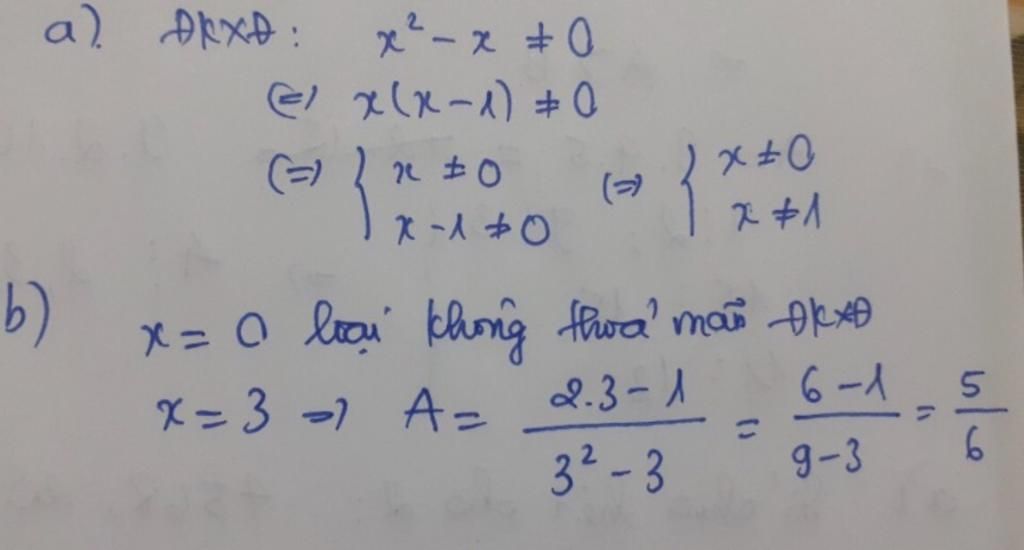 a). ĐKXĐ: x² - x ≠ 0
(=) x(x-1) ≠ 0
(=) { x ≠ 0 (=) { x ≠ 0
x - 1 ≠ 0 x ≠ 1
b) x = 0 loại không thoả mãn ĐKXĐ
x = 3 => A = \frac{2.3-1}{3² - 3} = \frac{6-1}{9-3} = \frac{5}{6}